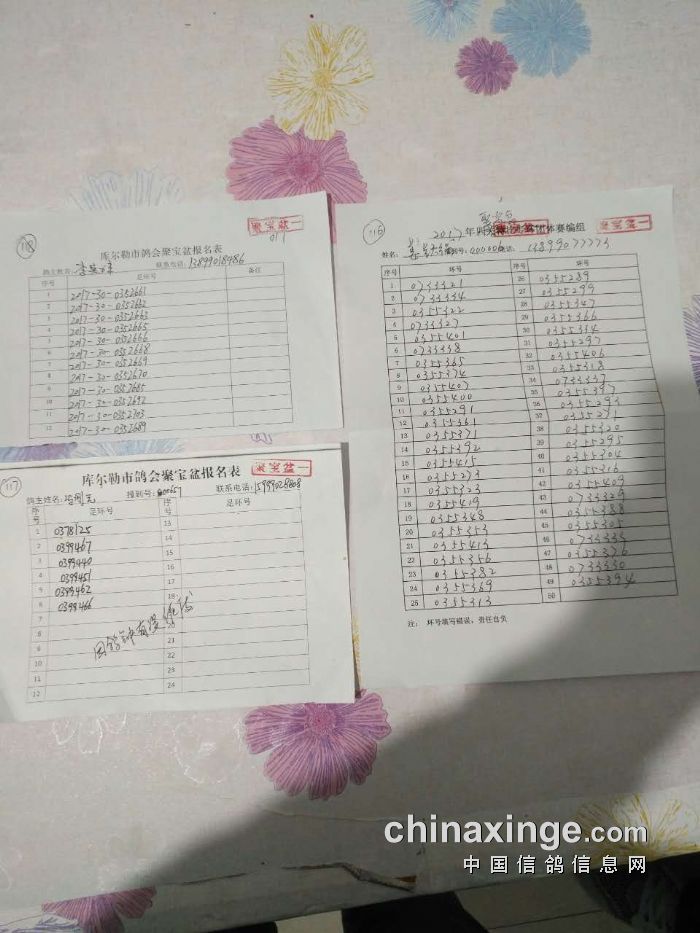 118
聚宝盆一
库尔勒市鸽会聚宝盆报名表
鸽主姓名: 联系电话: 13899018986
序号 足环号 备注
1 2017-30-0352661
2 2017-30-0352662
3 2017-30-0352663
4 2017-30-0352665
5 2017-30-0352666
6 2017-30-0352668
7 2017-30-0352669
8 2017-30-0352670
9 2017-30-0352685
10 2017-30-0352692
11 2017-30-0352703
12 2017-30-0352689
117
库尔勒市鸽会聚宝盆报名表
聚宝盆一
鸽主姓名: 报到号: 联系电话:
序号 足环号 序号 足环号
1 0378125 13
2 0399467 14
3 0399440 15
4 0399451 16
5 0399462 17
6 0399466 18
7
8 20
9 21
10 22
11 23
12 24
116
聚宝盆
2017年 团体赛编组
聚宝盆一
姓名: 000006 13899077773
序号 环号 序号 环号
1 0733321 26 0355289
2 0733334 27 0355299
3 0355322 28 0355347
4 0733327 29 0355366
5 0355401 30 0355314
6 0733338 31 0355297
7 0355365 32 0355406
8 0355374 33 0355318
9 0355407 34 0733337
10 0355400 35 0355397
11 0355291 36 0355293
12 0355361 37 0355271
13 0355371 38 0355320
14 0355392 39 0355295
15 0355415 40 0355304
16 0355273 41 0355316
17 0355323 42 0355409
18 0355419 43 0733329
19 0355348 44 0355388
20 0355353 45 0355305
21 0355413 46 0733333
22 0355356 47 0355376
23 0355382 48 0733330
24 0355369 49 0355394
25 0355313 50
注: 环号填写错误，责任自负
chinaxinge.com
中国信鸽信息网